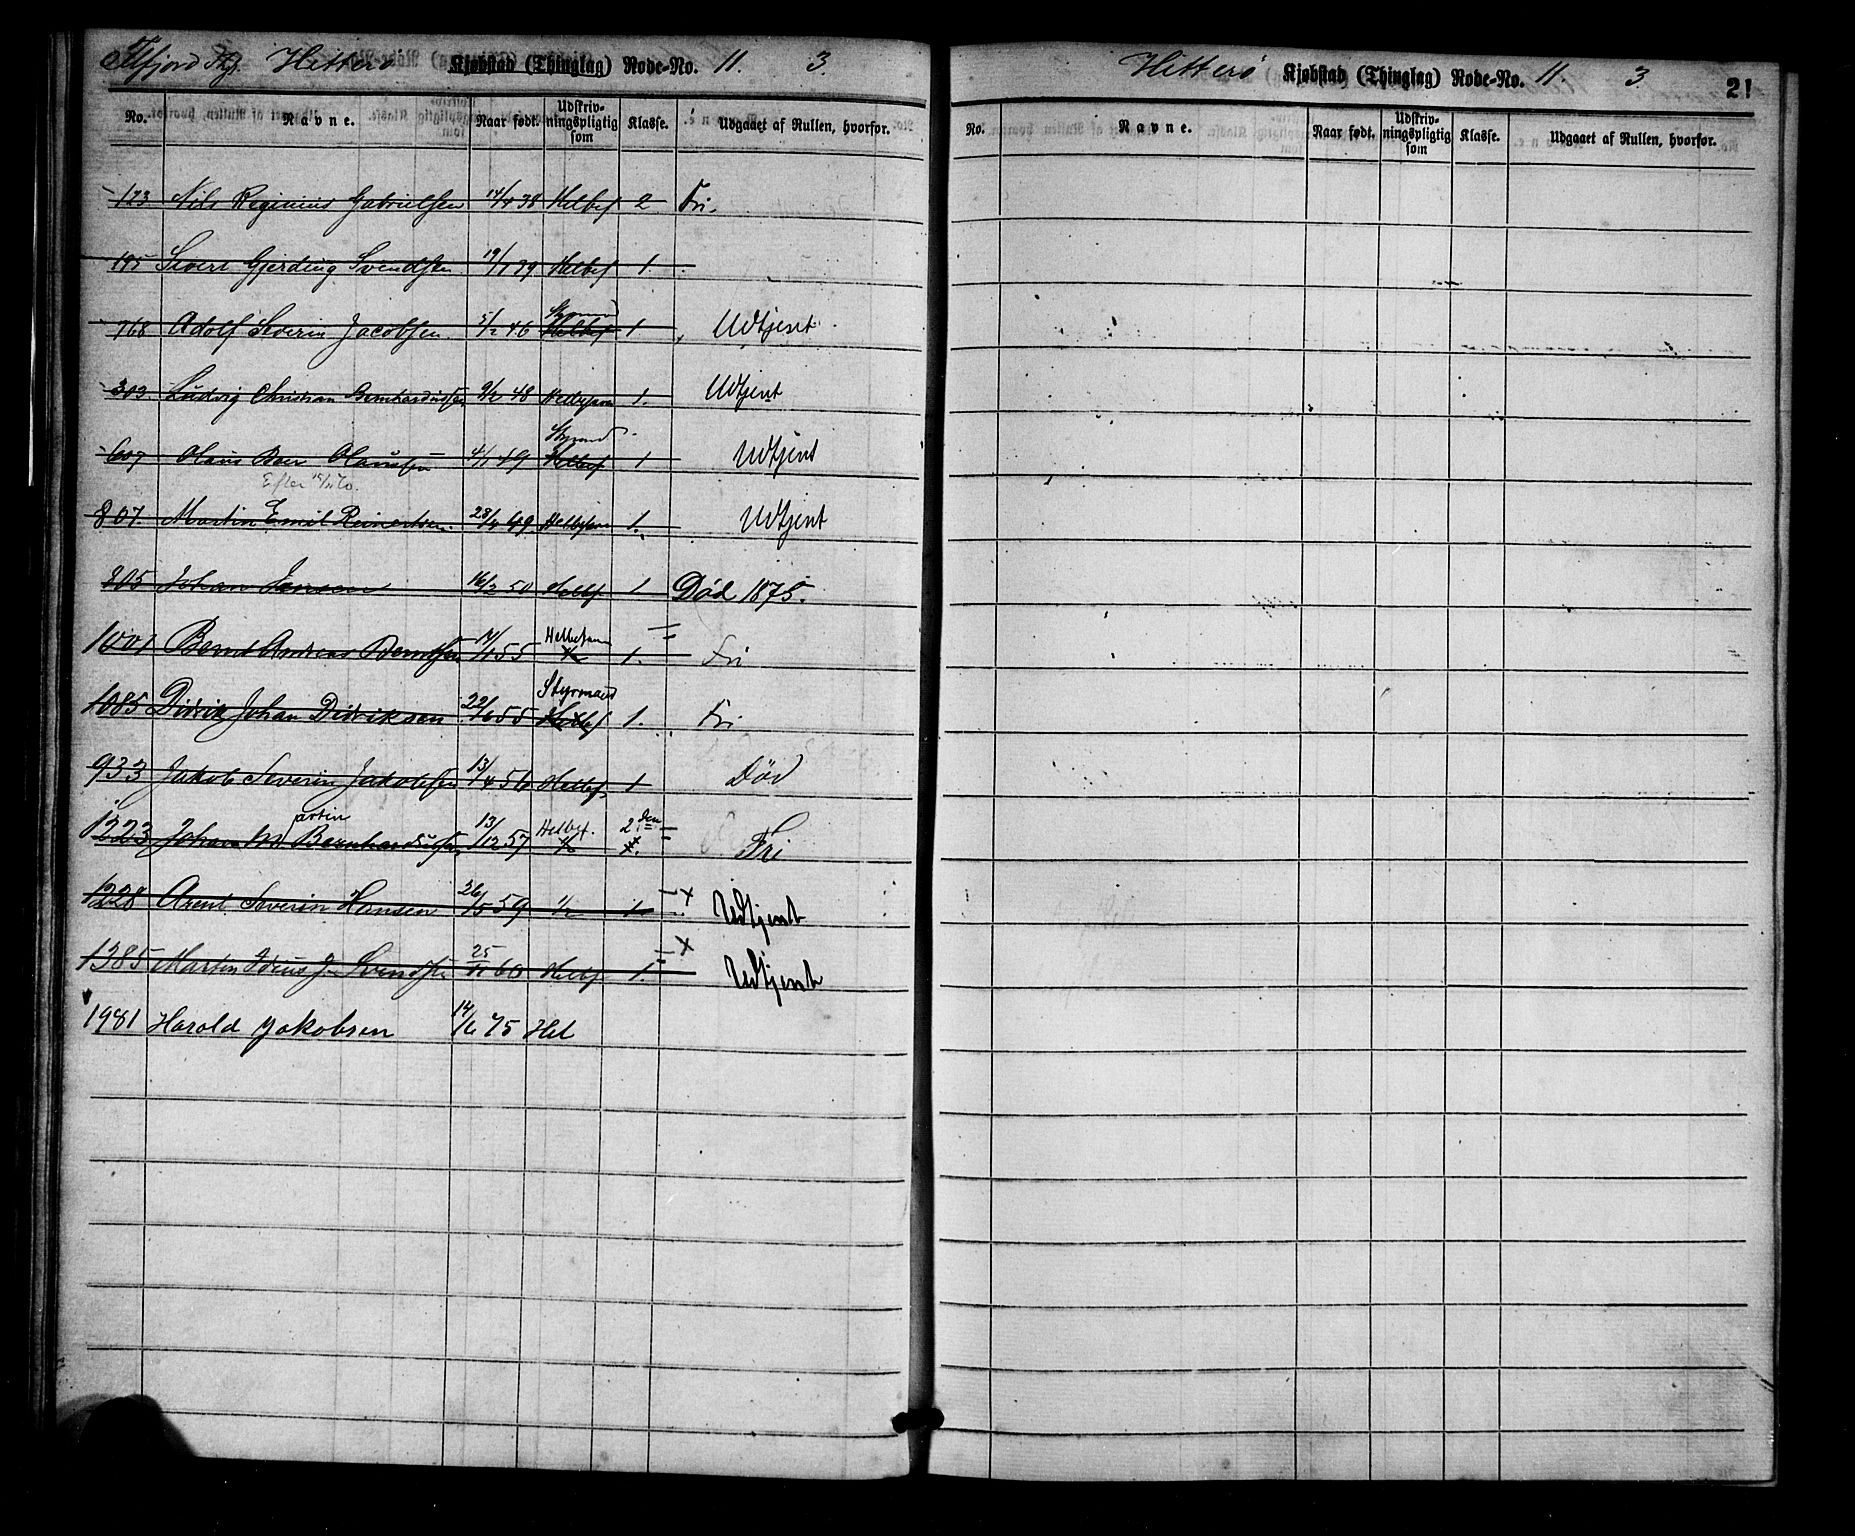 Hitterö Kjøbstad (Thinglag) Rode-No. 11. 3.
No. Navne. Naar født. Udskriv-ningspligtig som Klasse. Udgaaet af Rullen, hvorfor.
123 Nils Reginius Gabrielsen 14/4 38 Helbef 2 Fri.
195 Sivert Gjerding Svendsen 19/1 39 Helbef 1.
168 Adolf Severin Jacobsen. 5/2 46 Helbef Styrmd 1 Udtjent
303. Ludvig Christian Bernhardusen 9/2 48 Helbefaren 1. Udtjent
607 Olaus Olaussen 4/1 49 Helbef Styrmd 1 Udtjent
Efter
807. Martin Emil Reinertsen. 28/4 49 Helbefaren 1. Udtjent
305 Johan Jensen 16/2 50 Helbf 1 Død 1875.
1001 Bernt Andreas Berntsen 14/1 55 Helbefaren 1/2 1. Fri
1085 Didrik Johan Didriksen 22/6 55 Styrmand Helbef 1. Fri
933 Jakob Severin Jakobsen 13/4 56 Helbef. 1 Død
1223 Johan Martin Bernhardusen 13/12 57 Helbef. 1/2 2den Fri
1228 Arent Severin Hansen 26/5 59 1/2 1. Udtjent
1385 Martin Svendsen 25/ 60 Helbf 1. Udtjent
1981 Harald Jakobsen 14/6 75 Hel
Hitterö Kjøbstad (Thinglag) Rode-No. 11. 3 21
No. Navne. Naar født. Udskriv-ningspligtig som Klasse. Udgaaet af Rullen, hvorfor.